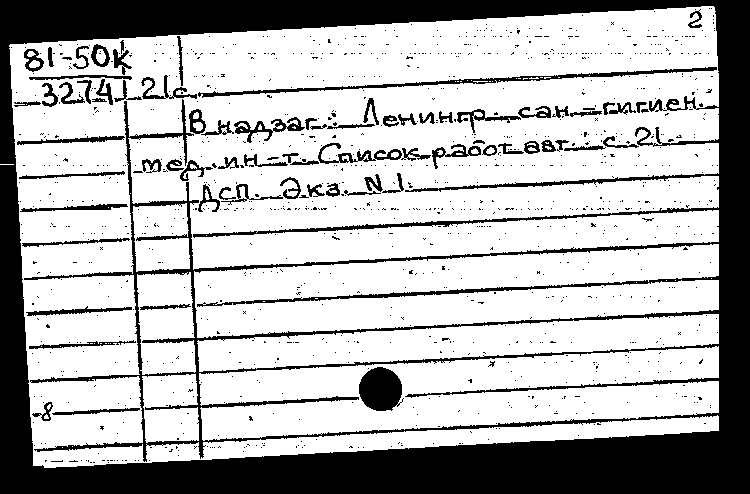 2
81-50к
3274 21с.
В надзаг.: Ленингр. сан.-гигиен.
мед. ин-т. Список работ авт.: с. 21.
Дсп. Экз. N 1.
8